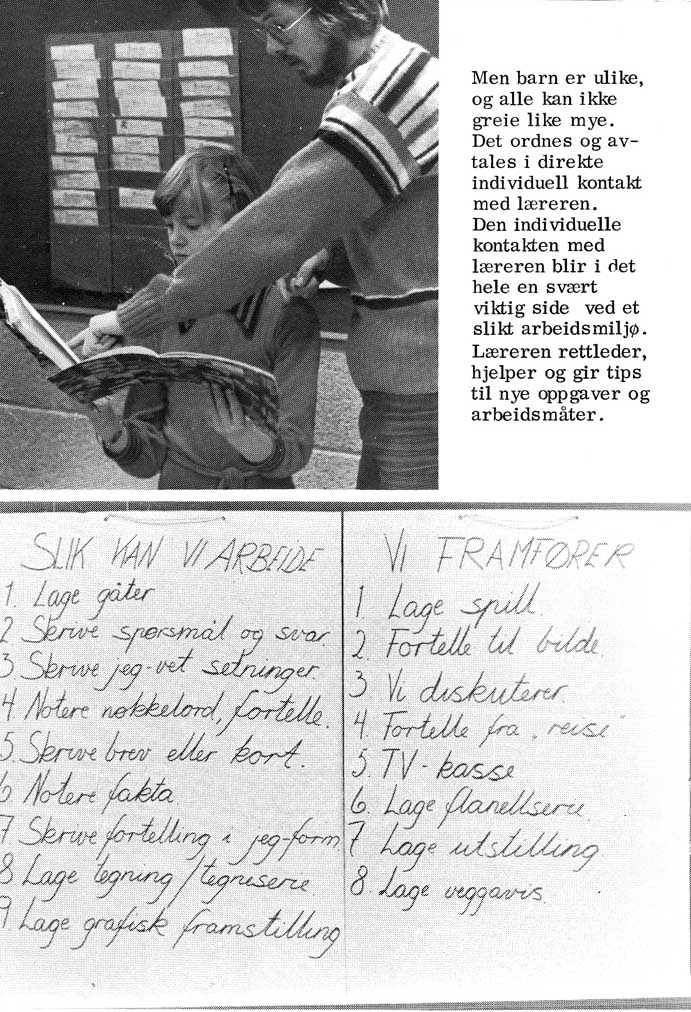 Men barn er ulike,
og alle kan ikke
greie like mye.
Det ordnes og av-
tales i direkte
individuell kontakt
med læreren.
Den individuelle
kontakten med
læreren blir i det
hele en svært
viktig side ved et
slikt arbeidsmiljø.
Læreren rettleder,
hjelper og gir tips
til nye oppgaver og
arbeidsmåter.
SLIK KAN VI ARBEIDE
1. Lage gåter
2 Skrive spørsmål og svar.
3. Skrive jeg-vet setninger.
4 Notere nøkkelord, fortelle.
5. Skrive brev eller kort.
6. Notere fakta
7 Skrive fortelling i jeg-form.
8 Lage tegning/tegneserie.
9. Lage grafisk framstilling
VI FRAMFØRER
1. Lage spill.
2. Fortelle til bilde.
3 Vi diskuterer.
4. Fortelle fra „reise"
5. TV-kasse
6. Lage flanellserie.
7 Lage utstilling.
8. Lage veggavis.